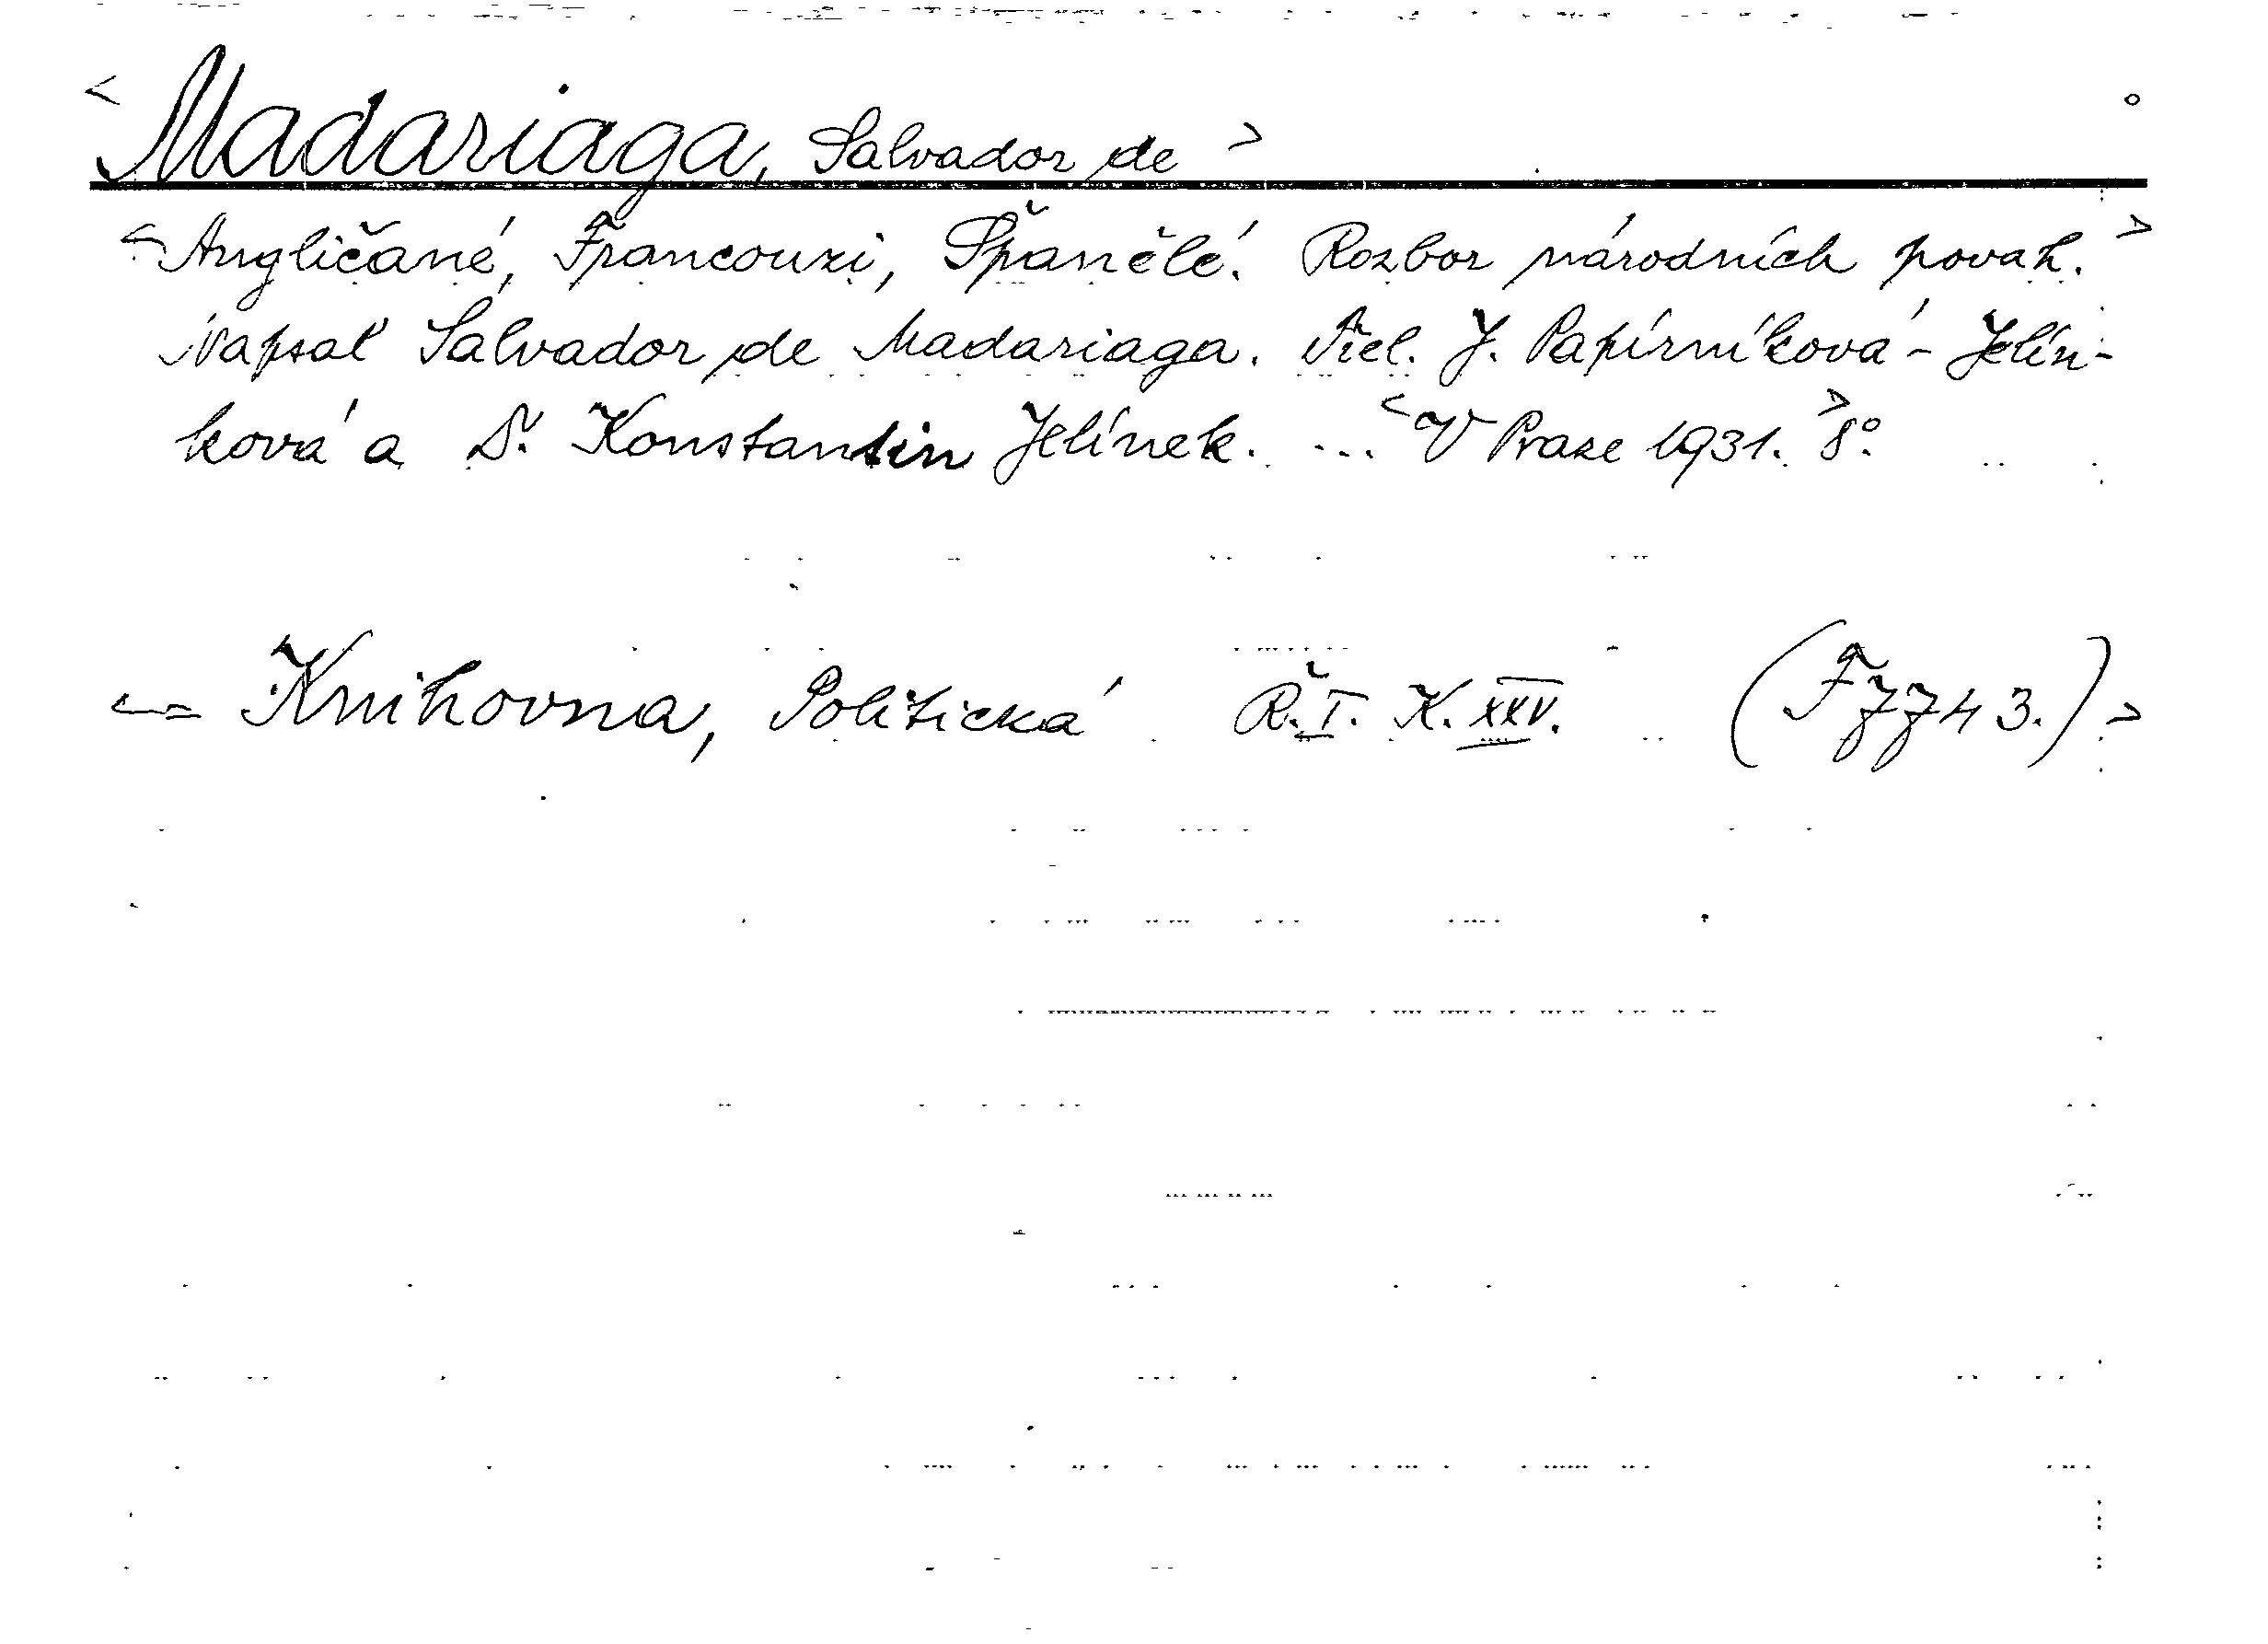 <Madariaga, Salvador de>
<Angličané, Francouzi, Španělé. Rozbor národních povah.>
Napsal Salvador de Madariaga. Přel. J. Papírníková-Jelín-
ková a Dr. Konstantin Jelínek. ... <V Praze 1931.> 8°.
<= Knihovna, Politická Ř. I. K. XXV. (F 7743.)>